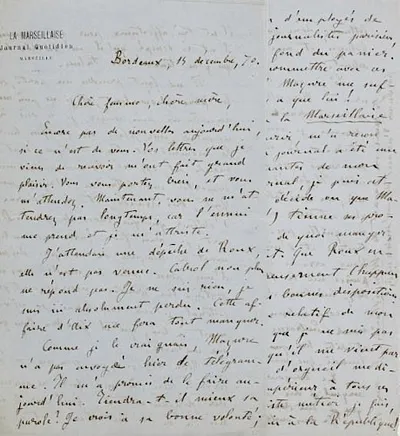 LA MARSEILLAISE
Journal Quotidien
MARSEILLE
Bordeaux, 15 décembre, 70.
Chère femme, chère mère,
Encore pas de nouvelles aujourd'hui,
si ce n'est de vous. Vos lettres que je
viens de recevoir m'ont fait grand
plaisir. Vous vous portez bien, et vous
m'attendez. Maintenant, vous ne m'at-
tendrez pas longtemps, car l'ennui
me prend et je m'attriste.
J'attendais une dépêche de Roux,
elle n'est pas venue. Cabrol non plus
ne répond pas. Je ne sais rien, je
suis ici absolument perdu. Cette af-
faire d'Aix me fera tout manquer.
Comme je le craignais, Masure
n'a pas envoyé hier de télégram-
me. Il m'a promis de le faire au-
jourd'hui. Tiendra-t-il mieux sa
parole? Je crois à sa bonne volonté;
d'employés de
journalistes parisiens
fond du panier.
commettre avec ces
Masure me suf-
que lui!
la Marseillaise
journal a été une
de mon
journal, je puis at-
décide en que Ma-
tienne sa pro-
de quoi manger.
que Roux en-
Chappuis
bonnes dispositions
relatif de mon
que je ne suis pas
qu'il me vient par
d'orgueil me di-
supérieur à tous ces
métier, je fais
à la République!